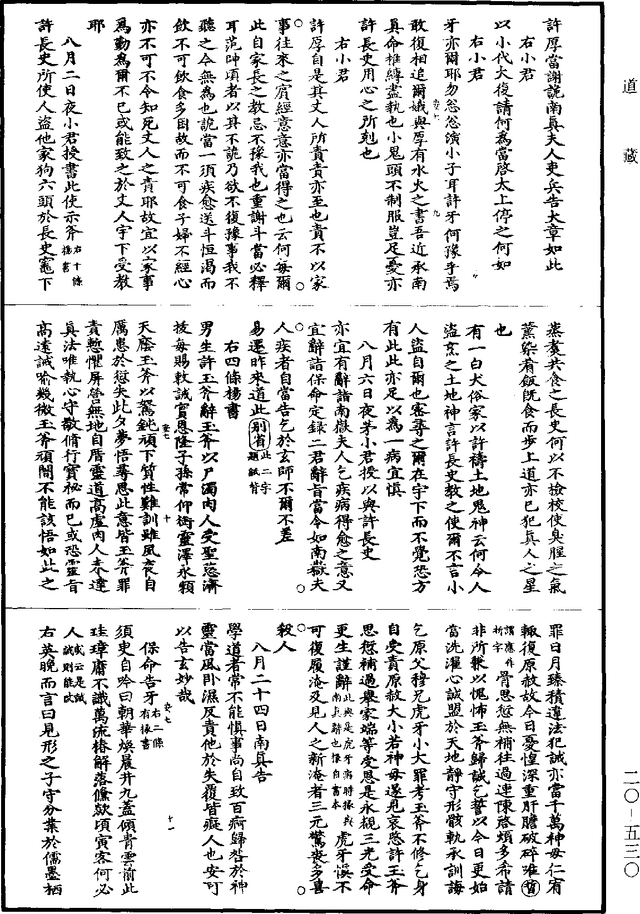 道藏
許厚當謝詭南真夫人吏兵告大章如此
右小君
以小代大復請何為當啓太上停之何如
右小君
牙亦爾耶勿忩忩演小子耳許牙何豫乎焉
敢復相追爾娥與厚有水火之書吾近承南
真命椎縛盡執也小鬼頭不制服豈足憂亦
許長史用心之所剋也
右小君
許厚自是其丈人所責責亦至也責不以家
事往來之賓經意意亦當得之也云何每爾
此自家長之教忌不豫我也重謝斗當必釋
耳范帥頃者以其不詭乃欲不復豫事我不
聽之今無為也詭當一須疾愈送斗恒渴而
飲不可飲食多因故而不可食子婦不經心
亦不可不令知死丈人之責耶故宜以家事
為勤為爾不已或能致之於丈人宇下受教
耶
八月二日夜小君授書此使示斧右十條楊書
許長史所使人盜他家狗六頭於長史竈下
蒸煑共食之長史何以不撿校使臭腥之氣
薰染肴飯既食而步上道亦已犯真人之星
也
有一白犬俗家以許禱土地鬼神云何令人
盜烹之土地神言許長史教之使爾不言小
人盜自爾也密尋之爾在宇下而不覺恐方
有此此亦足以為一病宜慎
八月六日夜茅小君授以與許長史
亦宜有辭詣南嶽夫人乞疾病得愈之意又
宜辭詣保命定錄二君辭旨當令如南嶽夫
人疾者自當告乞於玄師不爾不差
易遷昨來道此別省此二字題紙背
右四條楊書
男生許玉斧辭玉斧以尸濁肉人受聖慈濟
拔每賜敕誡實恩隆子孫常仰銜靈澤永賴
天廕玉斧以駑鈍頑下質性難訓雖夙夜自
厲患於愆失此夕夢悟尋思此意皆玉斧罪
責慙懼屏營無地自厝靈道高虛肉人未達
真法唯執心守敬脩行實祕而已或恐靈旨
高遠誡喻幾微玉斧頑闇不能該悟如此之
罪日月臻積違法犯誠亦當千萬神母仁宥
輒復原赦故今日憂惶深重肝膽破碎唯
謂應作折字骨思愆無補往過連陳啓煩多希請
非所輒以愧怖玉斧歸誠乞誓以今日更始
當洗濯心誠盟於天地靜守形骸軌承訓誨
乞原父穆兄虎牙小大罪考玉斧不修乞身
自受責原赦大小若神母遂見哀愍許玉斧
思愆補過舉家端等受恩是永視三光受命
更生謹辭此與是虎牙病時接我南真辭也掾自書本虎牙悮不
可復履淹及見人之新淹者三元驚喪多喜
殺人
八月二十四日南真告
學道者常不能慎事尚自致百痾歸咎於神
靈當風卧濕反責他於失覆皆癡人也安可
以告玄妙哉
保命告牙右二條有掾書
須史自吟曰朝華煥晨井九蓋傾青雲前此
珪璋庸不識萬流椿解落儵歘頃寅客何必
人或云是試試則龍伏
右英晚而言曰見形之子守分業於儒墨栖
二〇-五三〇